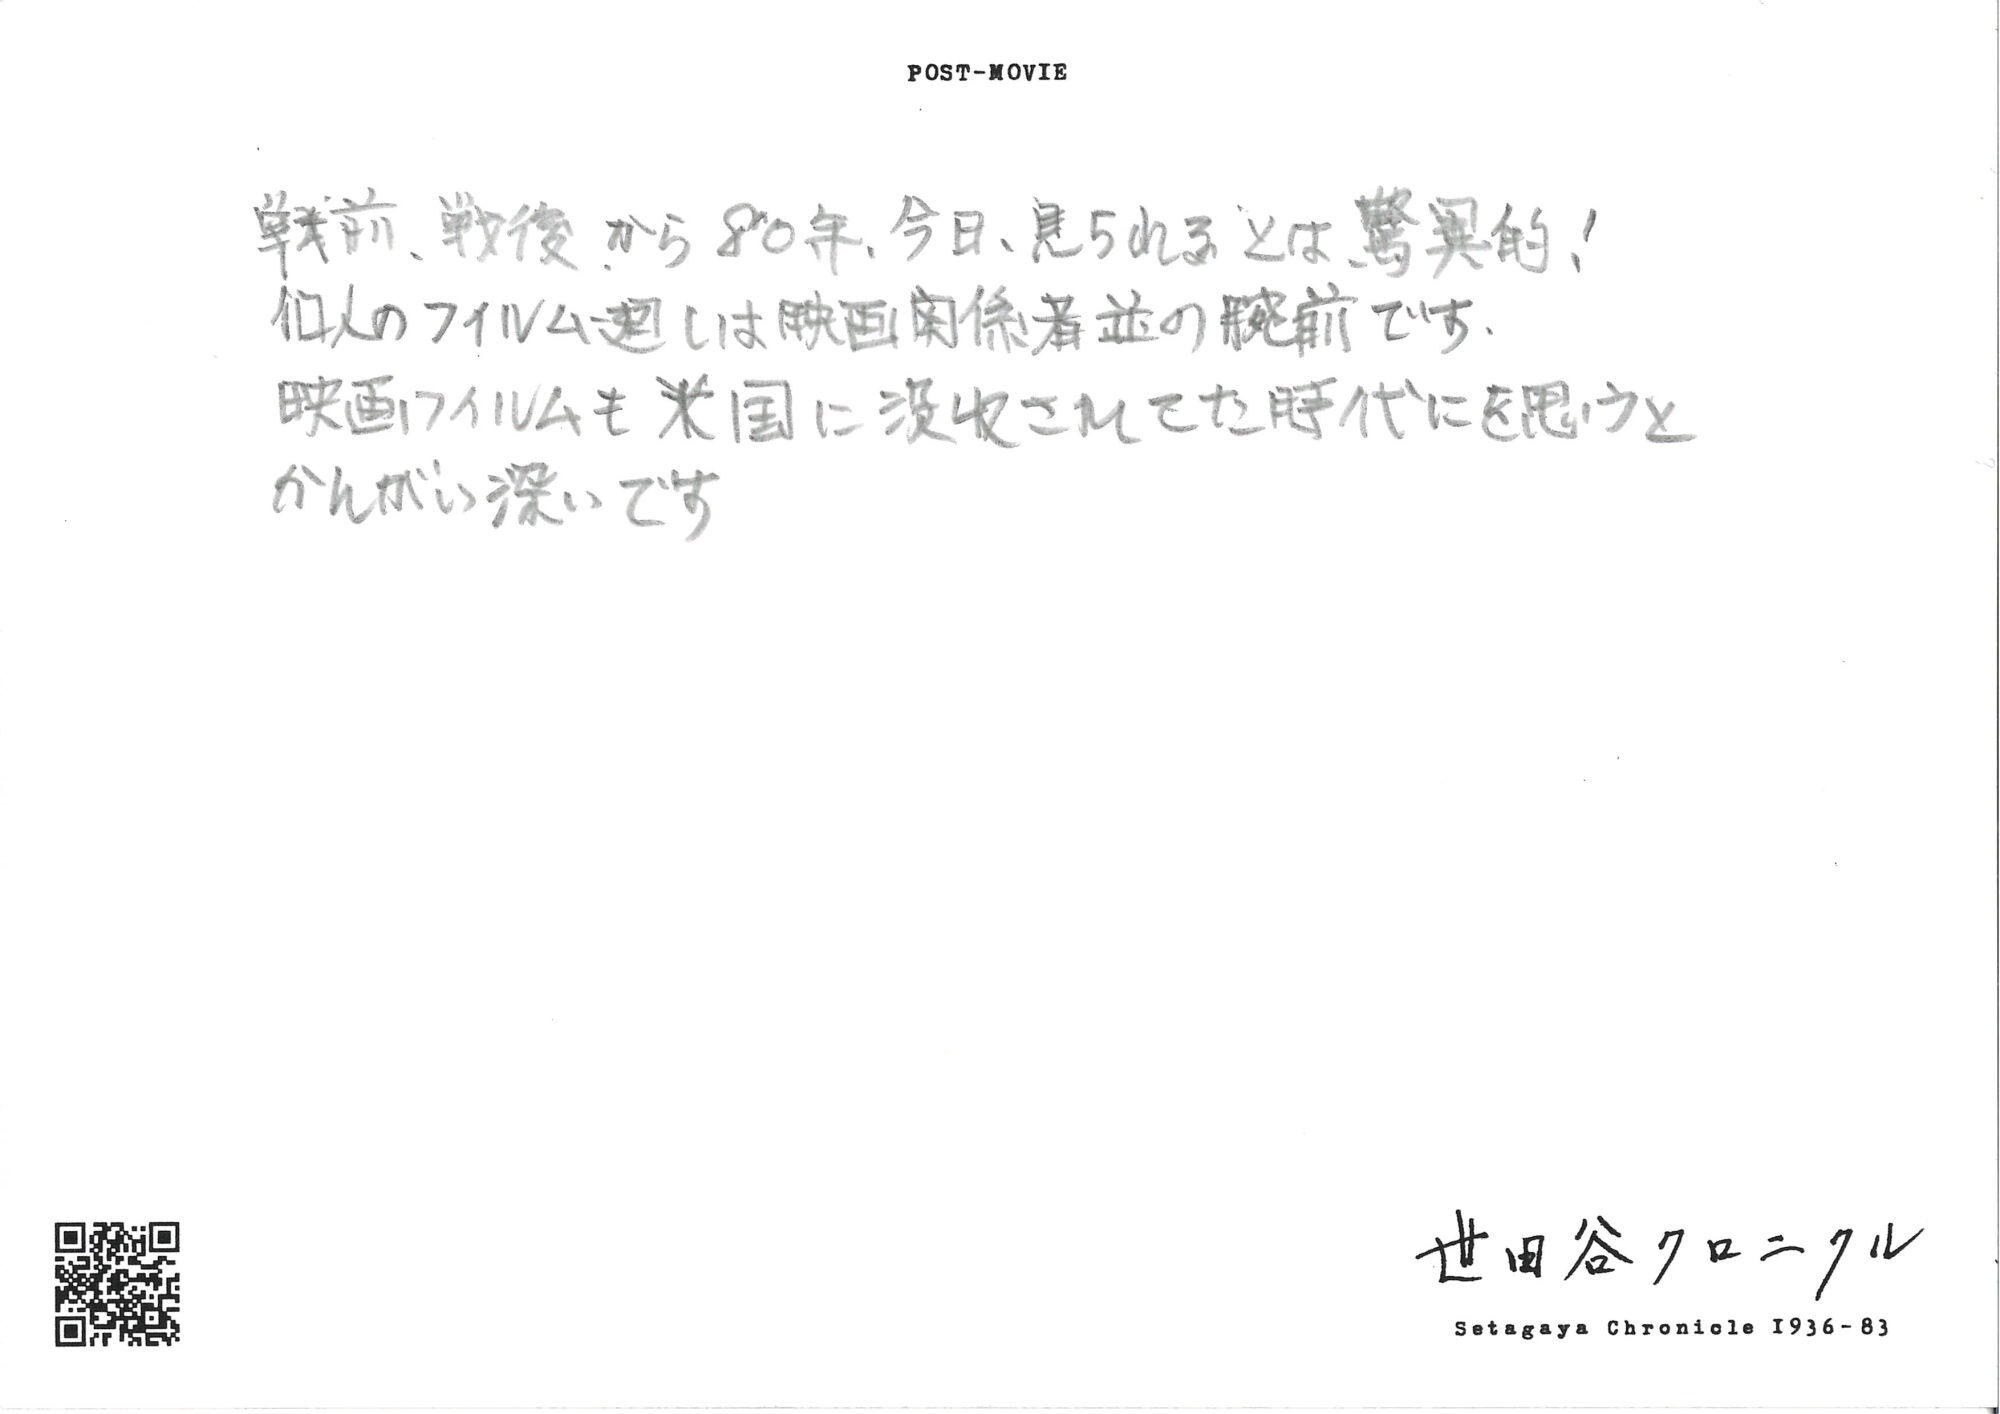 POST-MOVIE
戦前、戦後から80年、今日、見られるとは、驚異的!
個人のフイルム廻しは映画関係者並の腕前です.
映画フイルムも米国に没収されてた時代にを思うと
かんがい深いです
世田谷クロニクル
Setagaya Chronicle 1936-83